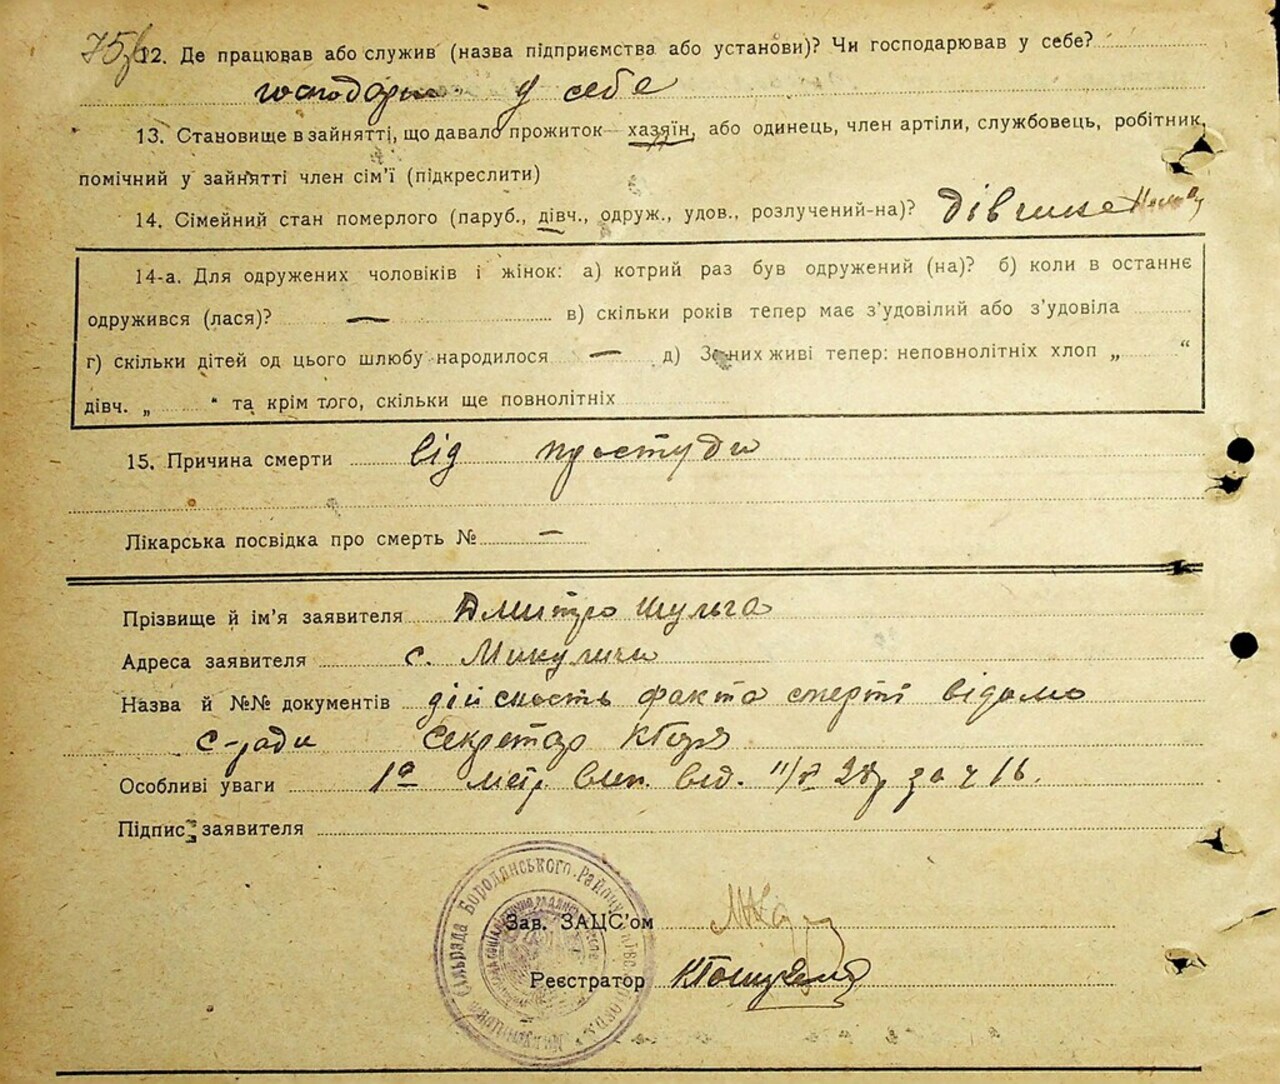 12. Де працював або служив (назва підприємства або установи)? Чи господарював у себе?
господарит у себе
13. Становище в зайнятті, що давало прожиток — хазяїн, або одинець, член артіли, службовець, робітник,
помічний у зайнятті член сім'ї (підкреслити)
14. Сімейний стан померлого (паруб., дівч., одруж., удов., розлучений-на)? дівчина
14-а. Для одружених чоловіків і жінок: а) котрий раз був одружений (на)? б) коли в останнє
одружився (лася)? — в) скільки років тепер має з'удовілий або з'удовіла
г) скільки дітей од цього шлюбу народилося — д) З них живі тепер: неповнолітніх хлоп „ “
дівч. „ “ та крім того, скільки ще повнолітніх
15. Причина смерти від простуди
Лікарська посвідка про смерть № —
Прізвище й ім'я заявителя Дмитро Шульга
Адреса заявителя с. Микуличи
Назва й №№ документів дійсность факта смерті відомо
с-ради Секретар
Особливі уваги 1а метр. вип. від. за ч 16.
Підпис заявителя
Зав. ЗАЦС'ом
Реєстратор
Сільрада Бородянського Району